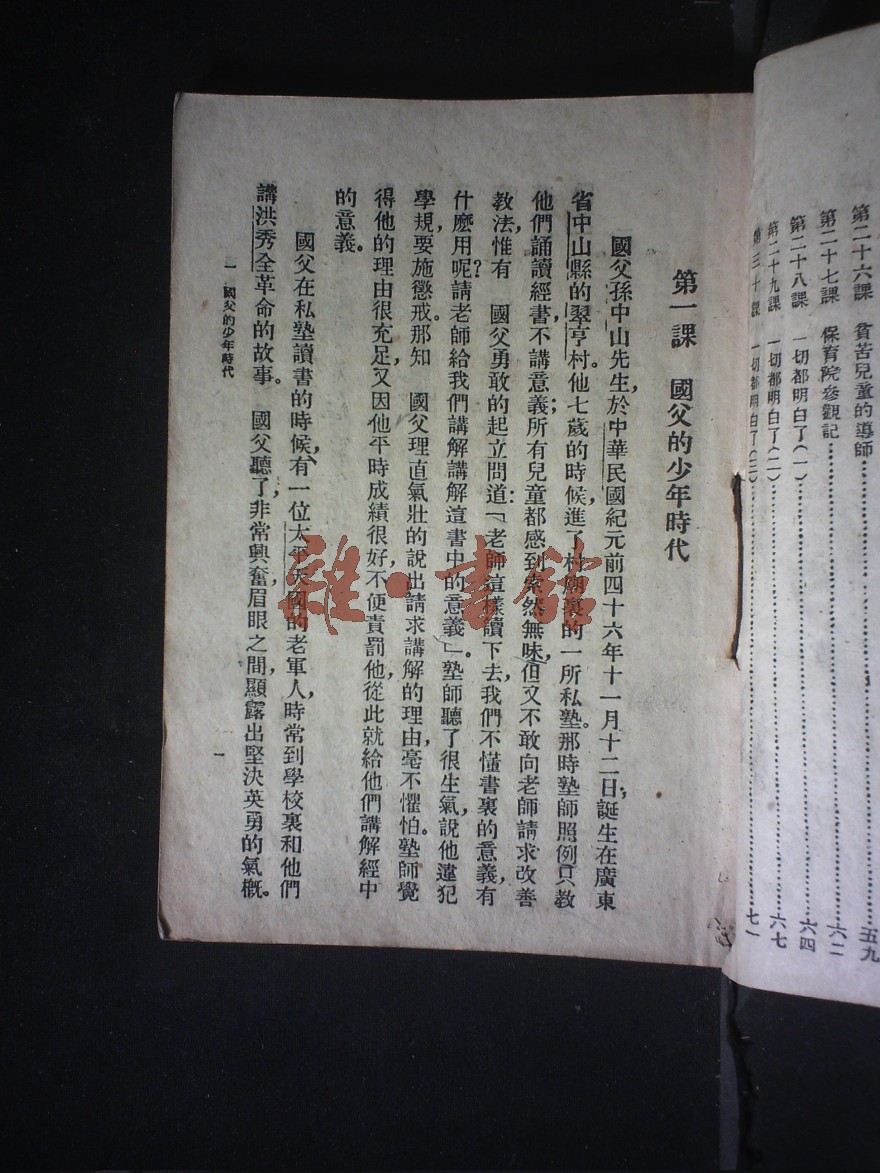 第二十六課　貧苦兒童的導師……五九
第二十七課　保育院參觀記……六二
第二十八課　一切都明白了(一)……六四
第二十九課　一切都明白了(二)……六七
第三十課　一切都明白了(三)……七一
第一課　國父的少年時代
國父孫中山先生，於中華民國紀元前四十六年十一月十二日，誕生在廣東
省中山縣的翠亨村。他七歲的時候，進了村廟裏的一所私塾。那時塾師照例只教
他們誦讀經書，不講意義；所有兒童都感到索然無味，但又不敢向老師請求改善
教法，惟有　國父勇敢的起立問道：「老師這樣讀下去，我們不懂書裏的意義，有
什麼用呢？請老師給我們講解講解這書中的意義」。塾師聽了很生氣，說他違犯
學規，要施懲戒。那知　國父理直氣壯的說出請求講解的理由，毫不懼怕。塾師覺
得他的理由很充足，又因他平時成績很好，不便責罰他，從此就給他們講解經中
的意義。
國父在私塾讀書的時候，有一位太平天國的老軍人，時常到學校裏和他們
講洪秀全革命的故事。　國父聽了，非常興奮，眉眼之間，顯露出堅決英勇的氣概。
一　國父的少年時代
一
雜·書館